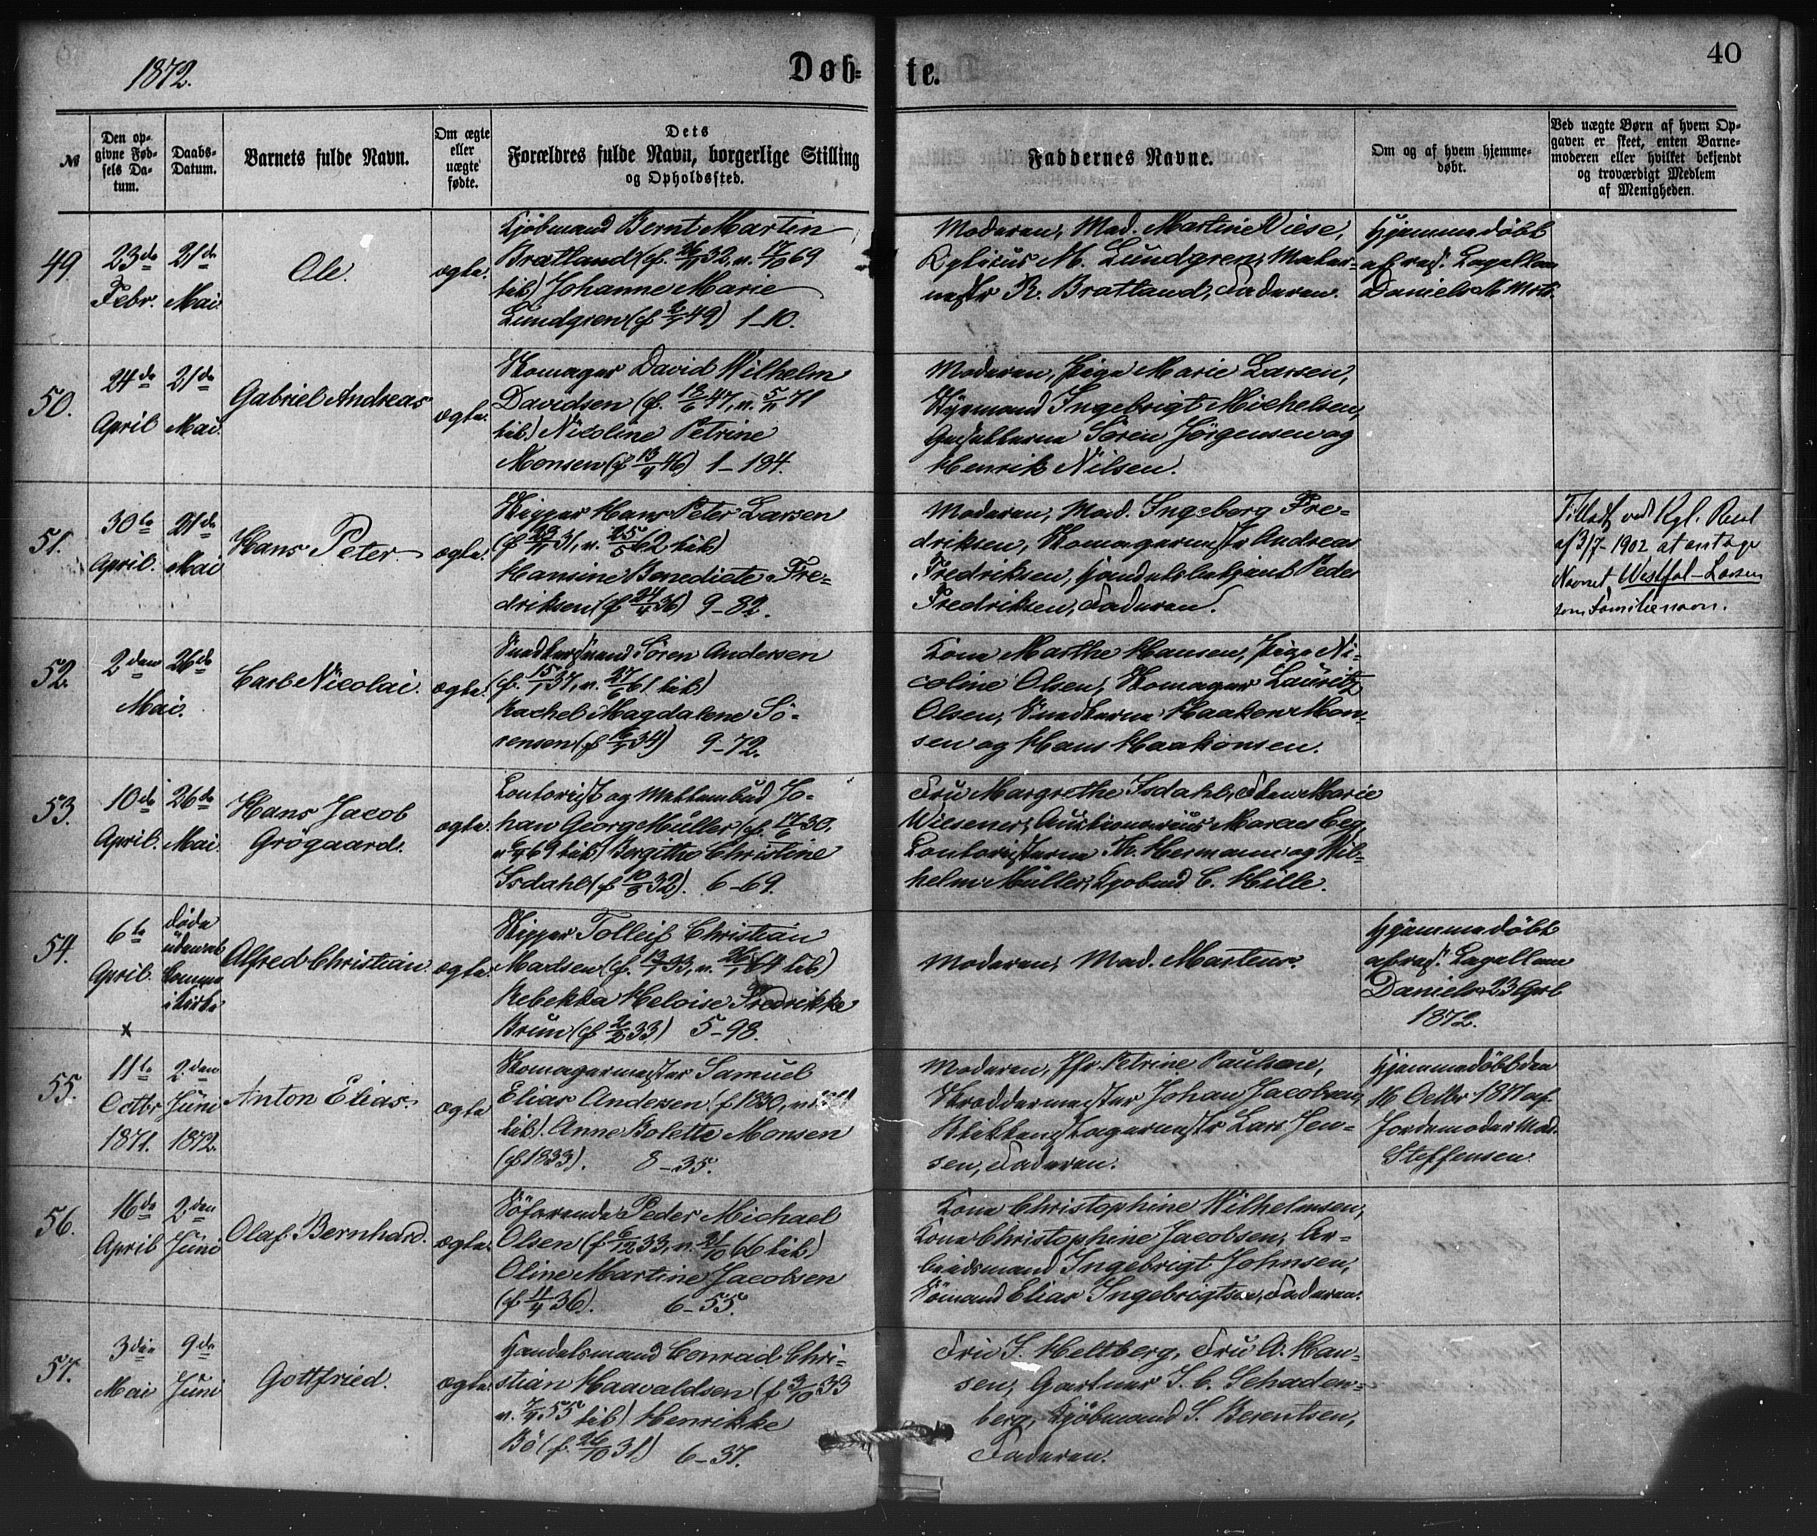 1872.
Döb-
te.
40
№
Den op-
givne Fød-
sels Da-
tum.
Daabs-
Datum.
Barnets fulde Navn.
Om ægte
eller
uægte
fødte.
Dets
Forældres fulde Navn, borgerlige Stilling
og Opholdssted.
Faddernes Navne.
Om og af hvem hjemme-
døbt.
Ved uægte Børn af hvem Op-
gaven er skeet, enten Barne-
moderen eller hvilket bekjendt
og troværdigt Medlem
af Menigheden.
49.
23de
Febr.
21de
Mai
Ole.
ægte.
Kjøbmand Bernt Martin
Bratland (f. 32, v. 69
hib) Johanne Marie
Lundgren (f 49) 1-10.
Moderen, Mad. Martine Wiese,
M. Lundgren, Maler-
mestr R. Bratland, Faderen.
Hjemmedöbt
af res. Capellan
Daniels
50.
24de
April.
21de
Mai.
Gabriel Andreas
ægte.
Skomager David Wilhelm
Davidsen (f. 12/6 47, v. 5/11 71
hib) Nicoline Petrine
Monsen (f 13/9 46) 1-184.
Moderen, Pige Marie Larsen,
Styrmand Ingebrigt Michelsen,
Gesellerne Sören Jörgensen og
Henrik Nilsen.
51.
30te
April.
21de
Mai
Hans Peter
ægte.
Skipper Hans Peter Larsen
(f 31, v. 25/5 62 hib)
Hansine Benedicte Fre-
driksen (f 36) 9-82.
Moderen, Mad. Ingeborg Fre-
driksen, Skomagermestr Andreas
Fredriksen, Handelsbetjent Peder
Fredriksen, Faderen.
Tilladt ved Kgl. Resl
af 3/7-1902 at antage
Navnet Westfal-Larsen
som Familienavn.
52.
2den
Mai.
26de
Carl Nicolai.
ægte.
Sören Andersen
(f. 15/1 37, v. 27/6 61 hib)
Rachel Magdalene Sö-
rensen (f 34) 9-72.
Kone Marthe Hansen, Pige Ni-
coline Olsen, Skomager Lauritz
Olsen, Snedkerne Haakon Mon-
sen og Hans Haakonsen.
53.
10de
April.
26de
Mai.
Hans Jacob
Grögaard.
ægte.
Contorist og Jo-
han Georg Müller (f. 17/6 30,
v. 69 hib) Bergithe Christine
Isdahl (f 10/3 32). 6-69.
Fru Margrethe Isdahl, Marie
Wiesener, Auktionarius
Contoristerne Th. Hermann og Wil-
helm Müller, C. Hille.
54.
6te
April.
döde
i Kirke
Alfred Christian.
ægte.
Skipper Tolleif Christian
(f. 33, v. 64 hib)
Rebekka Heloise Fredrikke
Brun (f 33) 5-98.
Moderen, Mad.
Hjemmedöbt
af res. Capellan
Daniels 23 Apl
1872.
x
55.
11te
Octbr
1871.
2den
Juni
1872.
Anton Elias.
ægte
Skomagermester Samuel
Elias Andersen (f 1830,
hib). Anne Bolette Monsen
(f 1833). 8-35.
Moderen, Jfr Petrine Paulsen,
Skræddermester Johan Jacobsen,
Lars Jen-
sen, Faderen.
Hjemmedöbt den
16 Octbr 1871 af
Jordemoder Mad.
Steffensen.
56.
16de
April
2den
Juni
Olaf Bernhard.
ægte.
Söfarende Peder Michael
Olsen (f. 6/12 33, v. 21/10 66 hib)
Oline Martine Jacobsen
(f 4/4 36). 6-55.
Kone Christophine Wilhelmsen,
Kone Christophine Jacobsen, Ar-
beidsmand Ingebrigt Johnsen,
Sömand Elias Ingebrigtsen, Faderen.
57.
3die
Mai
9de
Juni
Gottfried.
ægte.
Handelsmand Conrad Chri-
stian Haavaldsen (f 3/10 33
v. 7/9 55 hib) Henrikke
Bö (f. 26/10 31) 6-37.
Fru S. Heltberg, Fru A. Han-
sen, Gartner I. C. Schaden-
berg, Kjöbmand S. Berentsen,
Faderen.